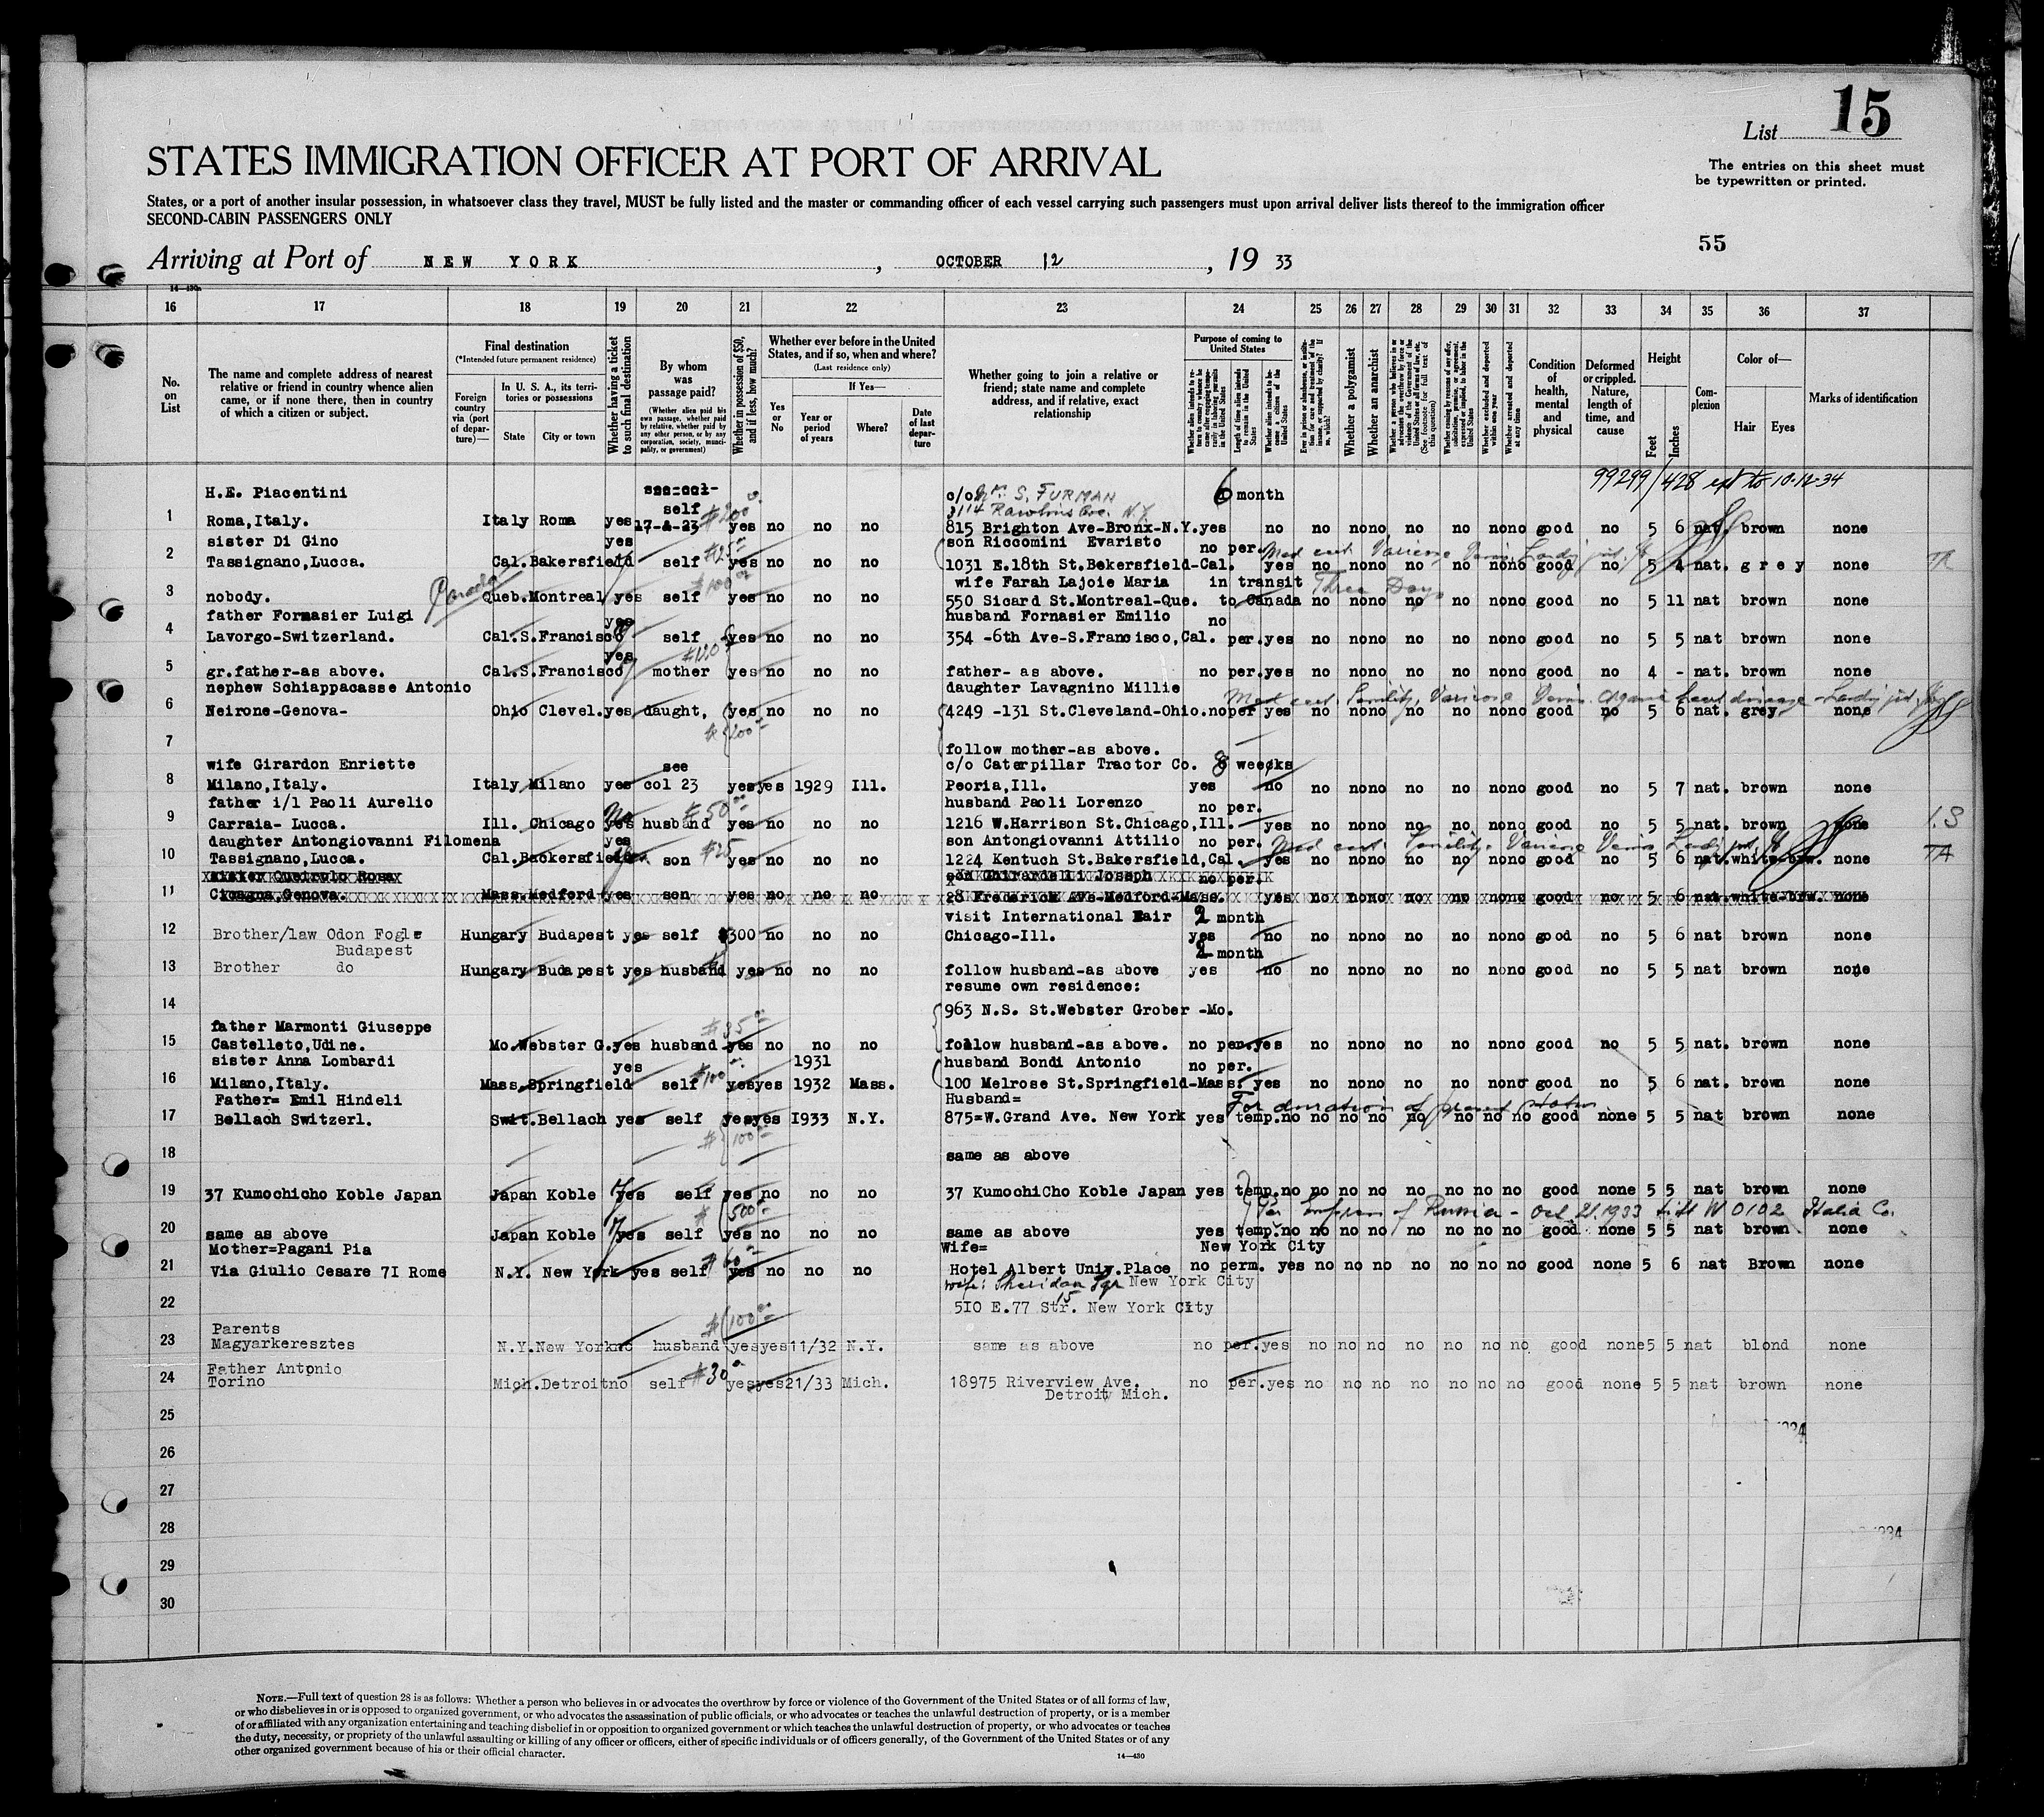 List 15
STATES IMMIGRATION OFFICER AT PORT OF ARRIVAL
The entries on this sheet must
be typewritten or printed.
States, or a port of another insular possession, in whatsoever class they travel, MUST be fully listed and the master or commanding officer of each vessel carrying such passengers must upon arrival deliver lists thereof to the immigration officer
SECOND-CABIN PASSENGERS ONLY
55
Arriving at Port of NEW YORK, OCTOBER 12, 19 33
14—430
16 17 18 19 20 21 22 23 24 25 26 27 28 29 30 31 32 33 34 35 36 37
No. on List
The name and complete address of nearest relative or friend in country whence alien came, or if none there, then in country of which a citizen or subject.
Final destination
(*Intended future permanent residence)
Foreign country via (port of departure)—
In U. S. A., its territories or possessions
State
City or town
Whether having a ticket to such final destination
By whom was passage paid?
(Whether alien paid his own passage, whether paid by relative, whether paid by any other person, or by any corporation, society, municipality, or government)
Whether in possession of $50, and if less, how much?
Whether ever before in the United States, and if so, when and where?
(Last residence only)
Yes or No
If Yes—
Year or period of years
Where?
Date of last departure
Whether going to join a relative or friend; state name and complete address, and if relative, exact relationship
Purpose of coming to United States
Whether alien intends to return to country whence he came after engaging temporarily in laboring pursuits in the United States
Length of time alien intends to remain in the United States
Whether alien intends to become a citizen of the United States
Ever in prison or almshouse, or institution for care and treatment of the insane, or supported by charity? If so, which?
Whether a polygamist
Whether an anarchist
Whether excluded and deported within one year
Whether arrested and deported at any time
Condition of health, mental and physical
Deformed or crippled. Nature, length of time, and cause
Height
Feet
Inches
Complexion
Color of—
Hair
Eyes
Marks of identification
99299/428 ext to 10-12-34
H.E. Piacentini see col- c/o Mr. S. FURMAN 6 month
self $200 3114 Rawlins Ave. N.Y.
1 Roma,Italy. Italy Roma yes 17-&-23 yes no no no 815 Brighton Ave-Bronx-N.Y. yes no no no no no no no no good no 5 6 nat. brown none
sister Di Gino yes $25 son Riccomini Evaristo no per.
2 Tassignano,Lucca. Cal. Bakersfield self yes no no no 1031 E.18th St.Bekersfield-Cal. yes no no no no no no no good no 5 4 nat. grey none
Canada $100 wife Farah Lajoie Maria in transit Three Days
3 nobody. Queb.Montreal yes self yes no no no 550 Sicard St.Montreal-Que. to Canada no no no no no no no good no 5 11 nat brown none
father Formasier Luigi yes husband Fornasier Emilio no
4 Lavorgo-Switzerland. Cal.S.Francisco self yes no no no 354 -6th Ave-S.Francisco,Cal. per. yes no no no no no no no good no 5 5 nat brown none
yes $120
5 gr.father-as above. Cal.S.Francisco mother yes no no no father- as above. no per. yes no no no no no no no good no 4 - nat. brown none
nephew Schiappacasse Antonio daughter Lavagnino Millie
6 Neirone-Genova- Ohio Clevel. yes daught. yes no no no 4249 -131 St.Cleveland-Ohio. no per yes no no no no no no no good no 5 6 nat. grey none
$200
7 follow mother-as above.
wife Girardon Enriette see c/o Caterpillar Tractor Co. 8 weecks
8 Milano,Italy. Italy Milano yes col 23 yes yes 1929 Ill. Peoria,Ill. yes no no no no no no no no good no 5 7 nat. brown none
father i/l Paoli Aurelio no $50 husband Paoli Lorenzo no per.
9 Carraia- Lucca. Ill. Chicago yes husband yes no no no 1216 W.Harrison St.Chicago,Ill. yes no no no no no no no good no 5 5 nat. brown none
daughter Antongiovanni Filomena yes $25 son Antongiovanni Attilio no per.
10 Tassignano,Lucca. Cal.Backersfield son yes no no no 1224 Kentuch St.Bakersfield,Cal yes no no no no no no no good no 5 6 nat. white-brw. none
sister Queirolo Rosa son Ghirardelli Joseph no per.
11 Cicagna,Genova. Mass.Medford yes son yes no no no 28 Frederick AVe-Medford-Mass. yes no no no no no no no good no 5 6 nat white-brw. none
visit International Fair 2 month
12 Brother/law Odon Fogle Hungary Budapest yes self $300 no no no Chicago-Ill. yes no no no no no no no no good no 5 6 nat brown none
Budapest 2 month
13 Brother do Hungary Budapest yes husband yes no no no follow husband-as above yes no no no no no no no no good no 5 5 nat brown none
resume own residence:
14 963 N.S. St.Webster Grober -Mo.
father Marmonti Giuseppe $35
15 Castelleto,Udine. Mo.Webster G. yes husband yes no no no follow husband-as above. no per. yes no no no no no no no good no 5 5 nat. brown none
sister Anna Lombardi yes $100 1931 husband Bondi Antonio no per.
16 Milano,Italy. Mass.Springfield self yes yes 1932 Mass. 100 Melrose St.Springfield-Mass. yes no no no no no no no good no 5 6 nat. brown none
Father= Emil Hindeli Husband= For duration of present status
17 Bellach Switzerl. Swit.Bellach yes self yes yes I933 N.Y. 875=W.Grand Ave. New York yes temp. no no no no no no no no good none 5 5 nat brown none
$100
18 same as above
19 37 Kumochicho Koble Japan Japan Koble yes self yes no no no 37 KumochiCho Koble Japan yes temp. no no no no no no no no good none 5 5 nat brown none
$500 Per Empress of Russia - Oct 21, 1933 W 0102 Italia Co.
20 same as above Japan Koble yes self yes no no no same as above yes temp. no no no no no no no no good none 5 5 nat brown none
Mother=Pagani Pia $60 Wife= New York City
21 Via Giulio Cesare 7I Rome N.Y. New York yes self yes no no no Hotel Albert Univ.Place no perm. yes no no no no no no no good none 5 6 nat Brown none
wife: Sheridan Sqr New York City
22 15 5IO E.77 Str. New York City
Parents $100
23 Magyarkeresztes N.Y.New York no husband yes yes 11/32 N.Y. same as above no per. yes no no no no no no no good none 5 5 nat blond none
Father Antonio $30
24 Torino Mich.Detroit no self yes yes 21/33 Mich. 18975 Riverview Ave. no per. yes no no no no no no no good none 5 5 nat brown none
Detroit Mich.
25
26
27
28
29
30
NOTE.—Full text of question 28 is as follows: Whether a person who believes in or advocates the overthrow by force or violence of the Government of the United States or of all forms of law,
or who disbelieves in or is opposed to organized government, or who advocates the assassination of public officials, or who advocates or teaches the unlawful destruction of property, or is a member
of or affiliated with any organization entertaining and teaching disbelief in or opposition to organized government or which teaches the unlawful destruction of property, or who advocates or teaches
the duty, necessity, or propriety of the unlawful assaulting or killing of any officer or officers, either of specific individuals or of officers generally, of the Government of the United States or of any
other organized government because of his or their official character.
14—430